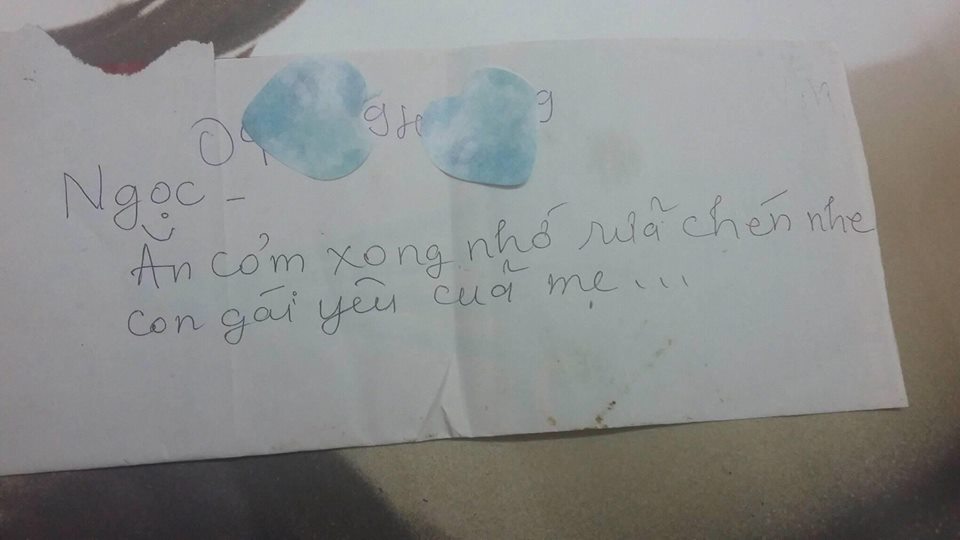 Ngọc -
Ăn cỏm xong nhớ rữa chén nhe
con gái yêu cuả mẹ...